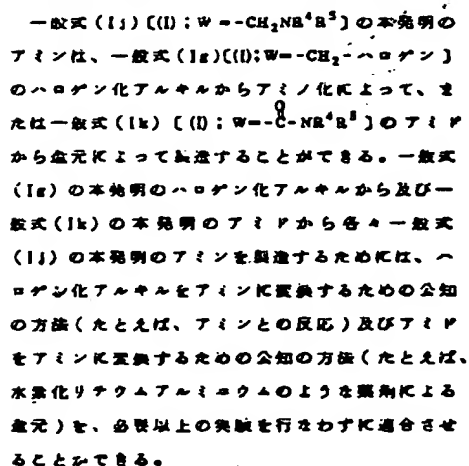 一般式(Ij)〔(I);W=-CH₂NR⁴R⁵〕の本発明の
アミンは、一般式(Ig)[(I);W=-CH₂-ハロゲン]
のハロゲン化アルキルからアミノ化によって、ま
たは一般式(Ik)〔(I);W=-C(=O)-NR⁴R⁵〕のアミド
から還元によって製造することができる。一般式
(Ig)の本発明のハロゲン化アルキルから及び一
般式(Ik)の本発明のアミドから各々一般式
(Ij)の本発明のアミンを製造するためには、ハ
ロゲン化アルキルをアミンに変換するための公知
の方法(たとえば、アミンとの反応)及びアミド
をアミンに変換するための公知の方法(たとえば、
水素化リチウムアルミニウムのような薬剤による
還元)を、必要以上の実験を行なわずに適合させ
ることができる。